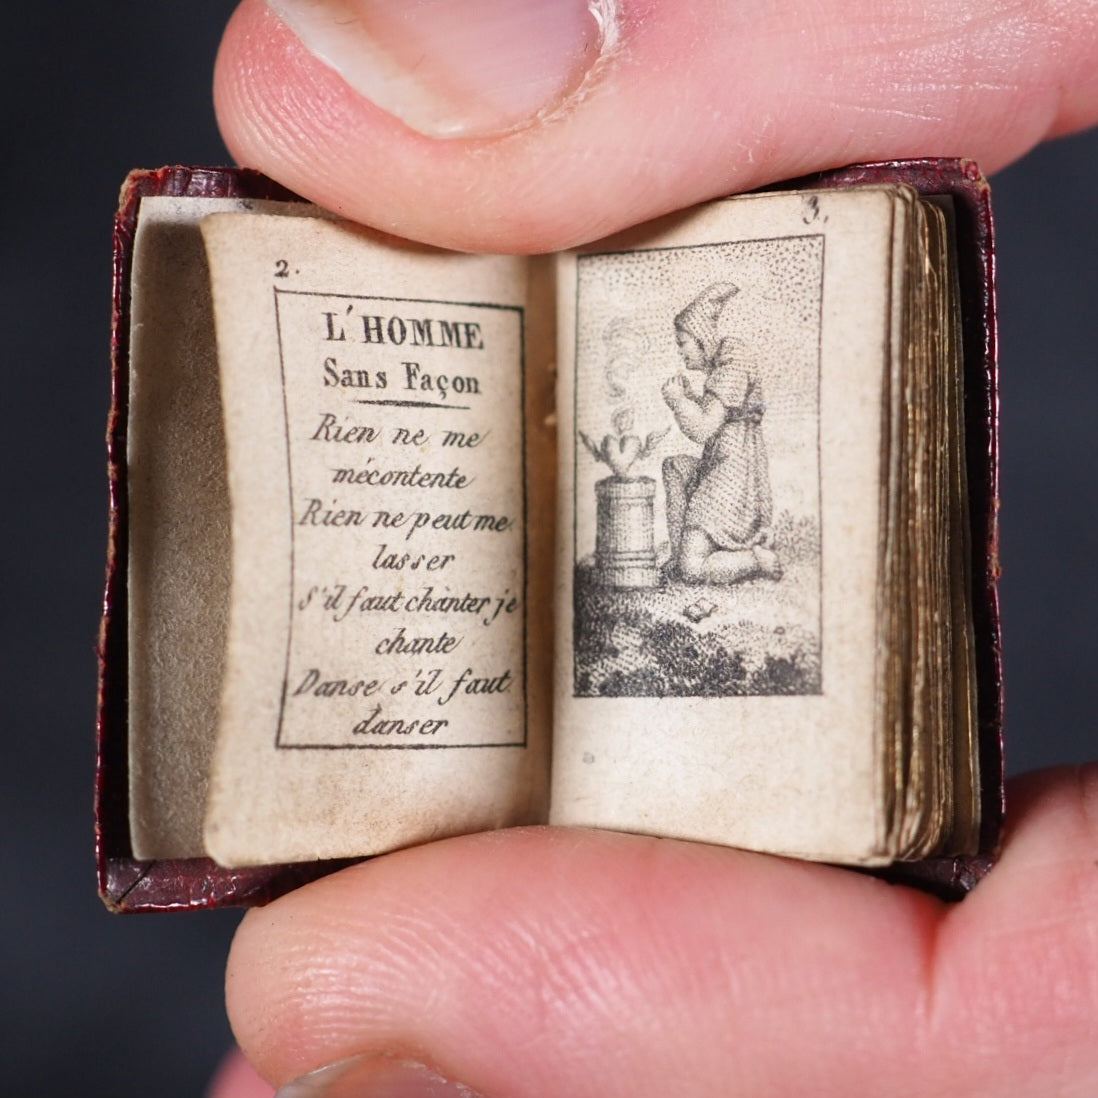 2.
L'HOMME
Sans Façon
Rien ne me
mécontente
Rien ne peut me
lasser
S'il faut chanter je
chante
Danse s'il faut
danser
3.